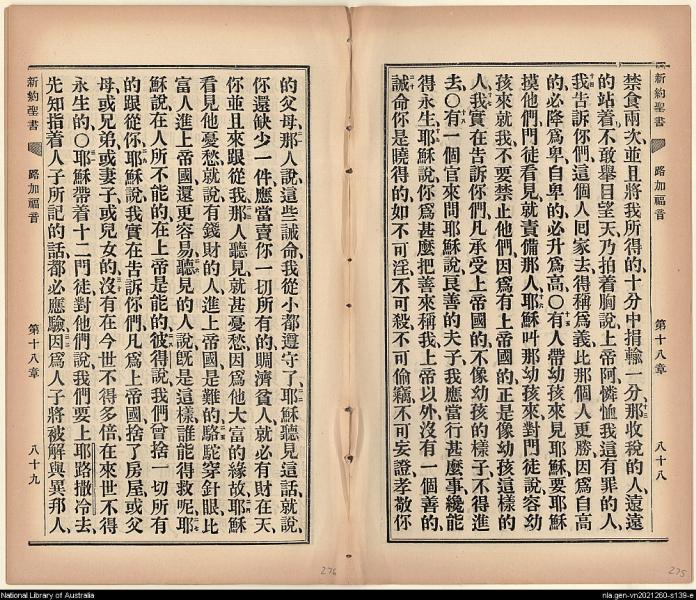 新約聖書 路加福音 第十八章 八十八
禁食兩次、並且將我所得的、十分中捐輸一分、那收稅的人、遠遠
的站着、不敢舉目望天、乃拍着胸說、上帝阿、憐恤我這有罪的人、
我告訴你們、這個人回家去得稱爲義、比那個人更勝、因爲自高
的必降爲卑、自卑的必升爲高、○有人帶幼孩來見耶穌、要耶穌
摸他們、門徒看見、就責備那人、耶穌叫那幼孩來、對門徒說、容幼
孩來就我、不要禁止他們、因爲有上帝國的、正是像幼孩這樣的
人、我實在告訴你們、凡承受上帝國的、不像幼孩的樣子、不得進
去、○有一個官來問耶穌說、良善的夫子、我應當行甚麼事、纔能
得永生、耶穌說、你爲甚麼把善來稱我、上帝以外、沒有一個善的、
誡命你是曉得的、如不可淫、不可殺、不可偷竊、不可妄證、孝敬你
的父母、那人說、這些誡命、我從小都遵守了、耶穌聽見這話、就說、
你還缺少一件、應當賣你一切所有的、賙濟貧人、就必有財在天、
你並且來跟從我、那人聽見、就甚憂愁、因爲他大富的緣故、耶穌
看見他憂愁、就說、有錢財的人進上帝國是難的、駱駝穿針眼、比
富人進上帝國還更容易、聽見的人說、旣是這樣、誰能得救呢、耶
穌說、在人所不能的、在上帝是能的、彼得說、我們曾捨一切所有
的跟從你、耶穌說、我實在告訴你們、凡爲上帝國捨了房屋、或父
母、或兄弟、或妻子、或兒女的、沒有在今世不得多倍、在來世不得
永生的、○耶穌帶着十二門徒、對他們說、我們要上耶路撒冷去、
先知指着人子所記的話、都必應驗、因爲人子將被解與異邦人、
新約聖書 路加福音 第十八章 八十九
276
275
National Library of Australia
nla.gen-vn2021260-s139-e